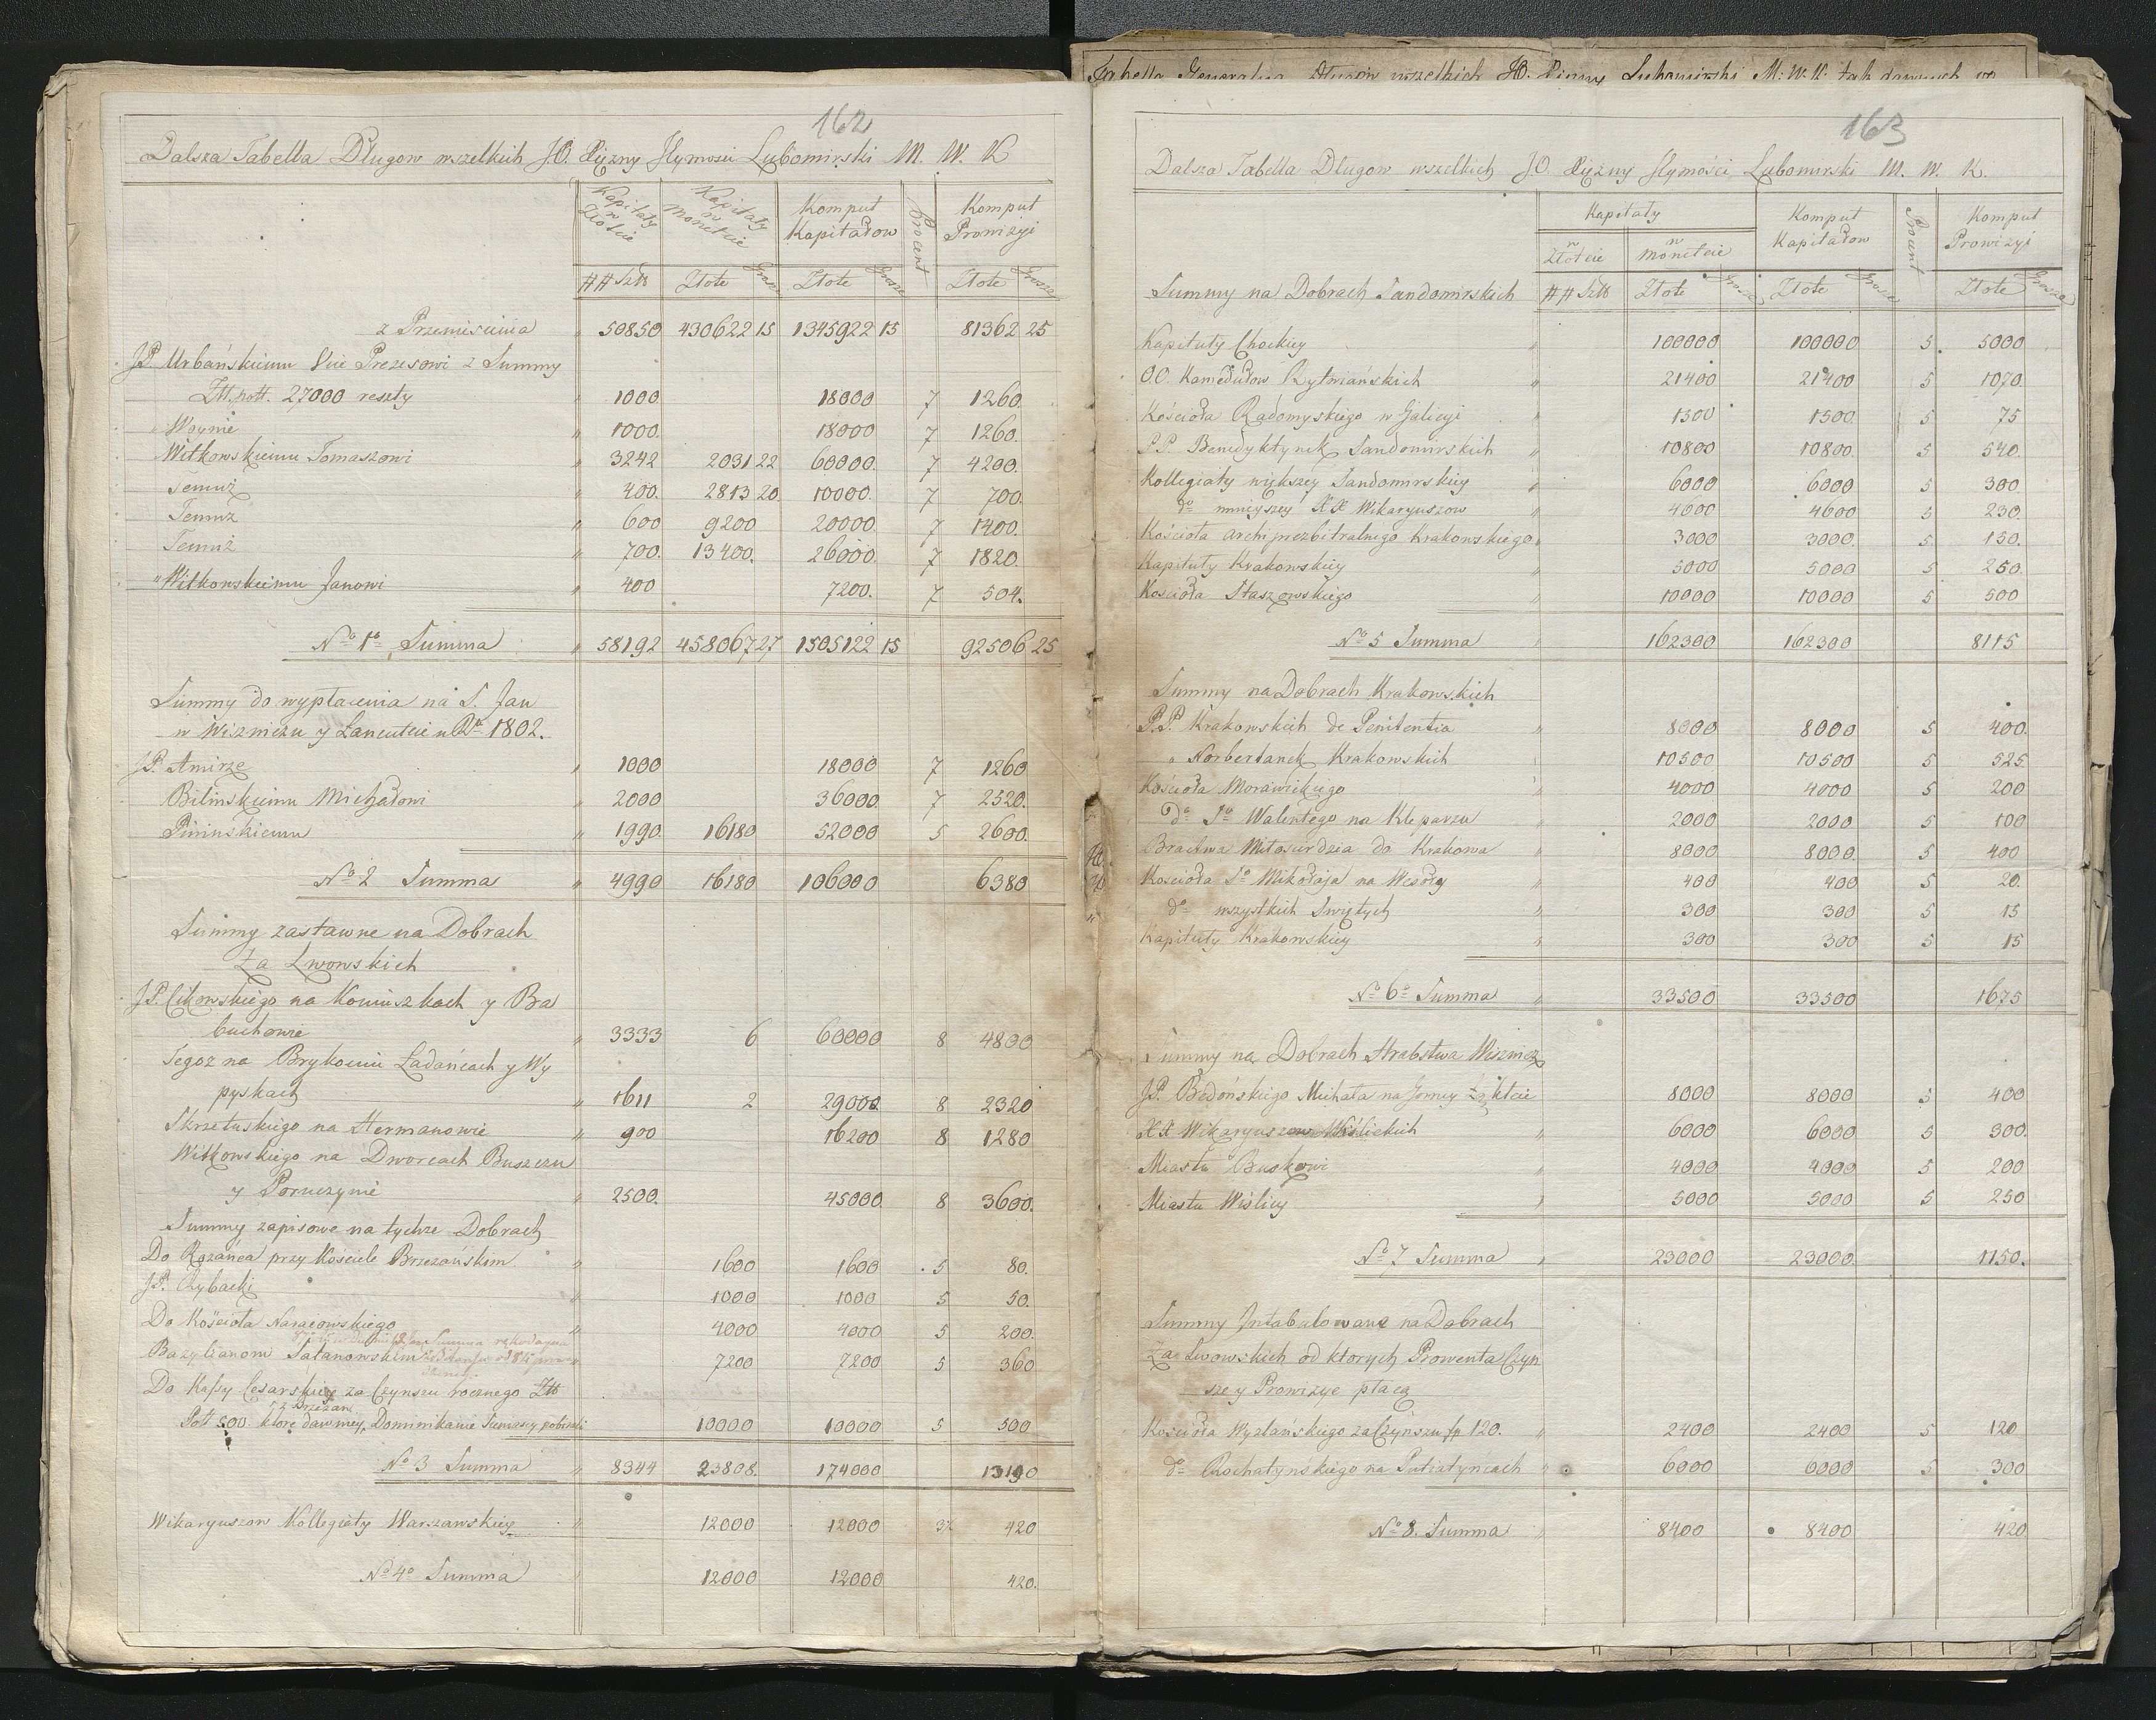 162
Dalsza Tabella Długow wszelkich J.O. Xiężny Jłymości Lubomirski M. W. K
Kapitały w Złocie
Kapitały w Monetcie
Komput Kapitałow
Procent
Komput Prowizyi
## Sztk Złote Grosze Złote Grosze Złote Grosze
z Przeniesienia " 50850 430622 15 1345922 15 81362 25
JP. Urbańskiemu Vice Prezesowi z Summy
Ztt. pott. 27000 reszty " 1000. 18000 7 1260.
" Woynie " 1000. 18000 7 1260.
Witkowskiemu Tomaszowi " 3242 2031 22 60000. 7 4200.
Temuż " 400. 2813 20 10000. 7 700.
Temuż " 600 9200 20000. 7 1400.
Temuż " 700. 13400. 26000. 7 1820.
" Witkowskiemu Janowi " 400 7200. 7 504.
No 1o Summa " 58192 458067 27 1505122 15 92506 25
Summy do wypłacenia na S. Jan
w Wiszniczu y Łancutcie u Ro 1802.
JP. Amirze " 1000 18000 7 1260
Bilinskiemu Michałowi " 2000 36000 7 2520.
Pininskiemu " 1990. 16180 52000 5 2600.
No 2 Summa " 4990 16180 106000 6380
Summy zastawne na Dobrach
Za Lwowskich
JP. Cikowskiego na Koniuszkach y Ba
buchowie " 3333 6 60000 8 4800
Tegoz na Brykoniu Ładańcach y Wy
pyskach " 1611 2 29000 8 2320
Skrzetuskiego na Hermanowie " 900 16200 8 1280
Witkowskiego na Dworcach Buszczu
y Poruczynie " 2500. 45000 8 3600.
Summy zapisowe na tychże Dobrach
Do Rożańca przy Kościele Brzezańskim " 1600 1600 5 80.
JP. Rybacki " 1000 1000 5 50.
Do Kościoła Naraiowskiego " 4000 4000 5 200.
Bazylianom Satanowskim " 7200 7200 5 360
Do Kassy Cesarskiey za Czynszu rocznego Ztt
z Brzezan
Pott 500. ktore dawniey Dominikanie Tameczni pobierali 10000 10000 5 500
No 3 Summa " 8344 23808. 174000 13190
Wikaryuszow Kollegiaty Warszawskiey " 12000 12000 3½ 420
No 4o Summa " 12000 12000 420.
Tabella Generalna Długow wszelkich JO. Xiężny Lubomirski M. W. K. tak dawnych
163
Dalsza Tabella Długow wszelkich J.O Xiężny Jłymości Lubomirski M. W. K.
Kapitały
w Złotcie
w Monetcie
Komput Kapitałow
Procent
Komput Prowizyi
Summy na Dobrach Sandomirskich ## Sztk Złote Grosze Złote Grosze Złote Grosze
Kapituły Chockiey " 100000 100000 5. 5000
O.O. Kamedułow Rytwiańskich " 21400 21400 5 1070.
Kościoła Radomyskiego w Galicyi " 1500 1500. 5 75
P.P. Benedyktynek Sandomirskich " 10800 10800. 5 540.
Kollegiaty większey Sandomirskiey " 6000 6000 5 300
do mnieyszey XX Wikaryuszow " 4600 4600 5 230.
Kościoła Archiprezbitralnego Krakowskiego " 3000 3000. 5. 150.
Kapituły Krakowskiey " 5000 5000 5 250.
Kościoła Staszowskiego " 10000 10000 5 500
No 5 Summa " 162300 162300 8115
Summy na Dobrach Krakowskich
P.P. Krakowskich de Penitentia " 8000 8000 5 400.
" Norbertanek Krakowskich " 10500 10500 5 525
Kościoła Morawickiego " 4000 4000 5 200
do So Walentego na Kleparzu " 2000 2000 5 100
Bractwa Miłosierdzia do Krakowa " 8000 8000. 5 400
Kościoła So Mikołaja na Wesoły " 400 400 5 20.
do wszystkich Swiętych " 300 300 5 15
Kapituły Krakowskiey " 300 300 5 15
No 6o Summa " 33500 33500 1675
Summy na Dobrach Hrabstwa Wisznicz
JP. Bedońskiego Michała na Gorney 8000 8000 5 400
XX Wikaryuszow Wiślickich " 6000 6000 5 300.
Miastu Buskowi " 4000 4000 5 200
Miastu Wiślicy " 5000 5000 5 250
No 7 Summa " 23000 23000. 1150.
Summy Intabulowane na Dobrach
Za Lwowskich od ktorych Prowenta Czyn
sze y Prowizye płacą
Kościoła za Czynszu fp 120. " 2400 2400 5 120
do Rochatynskiego na Putiatyncach " 6000 6000 5 300
No 8. Summa " 8400 8400 420